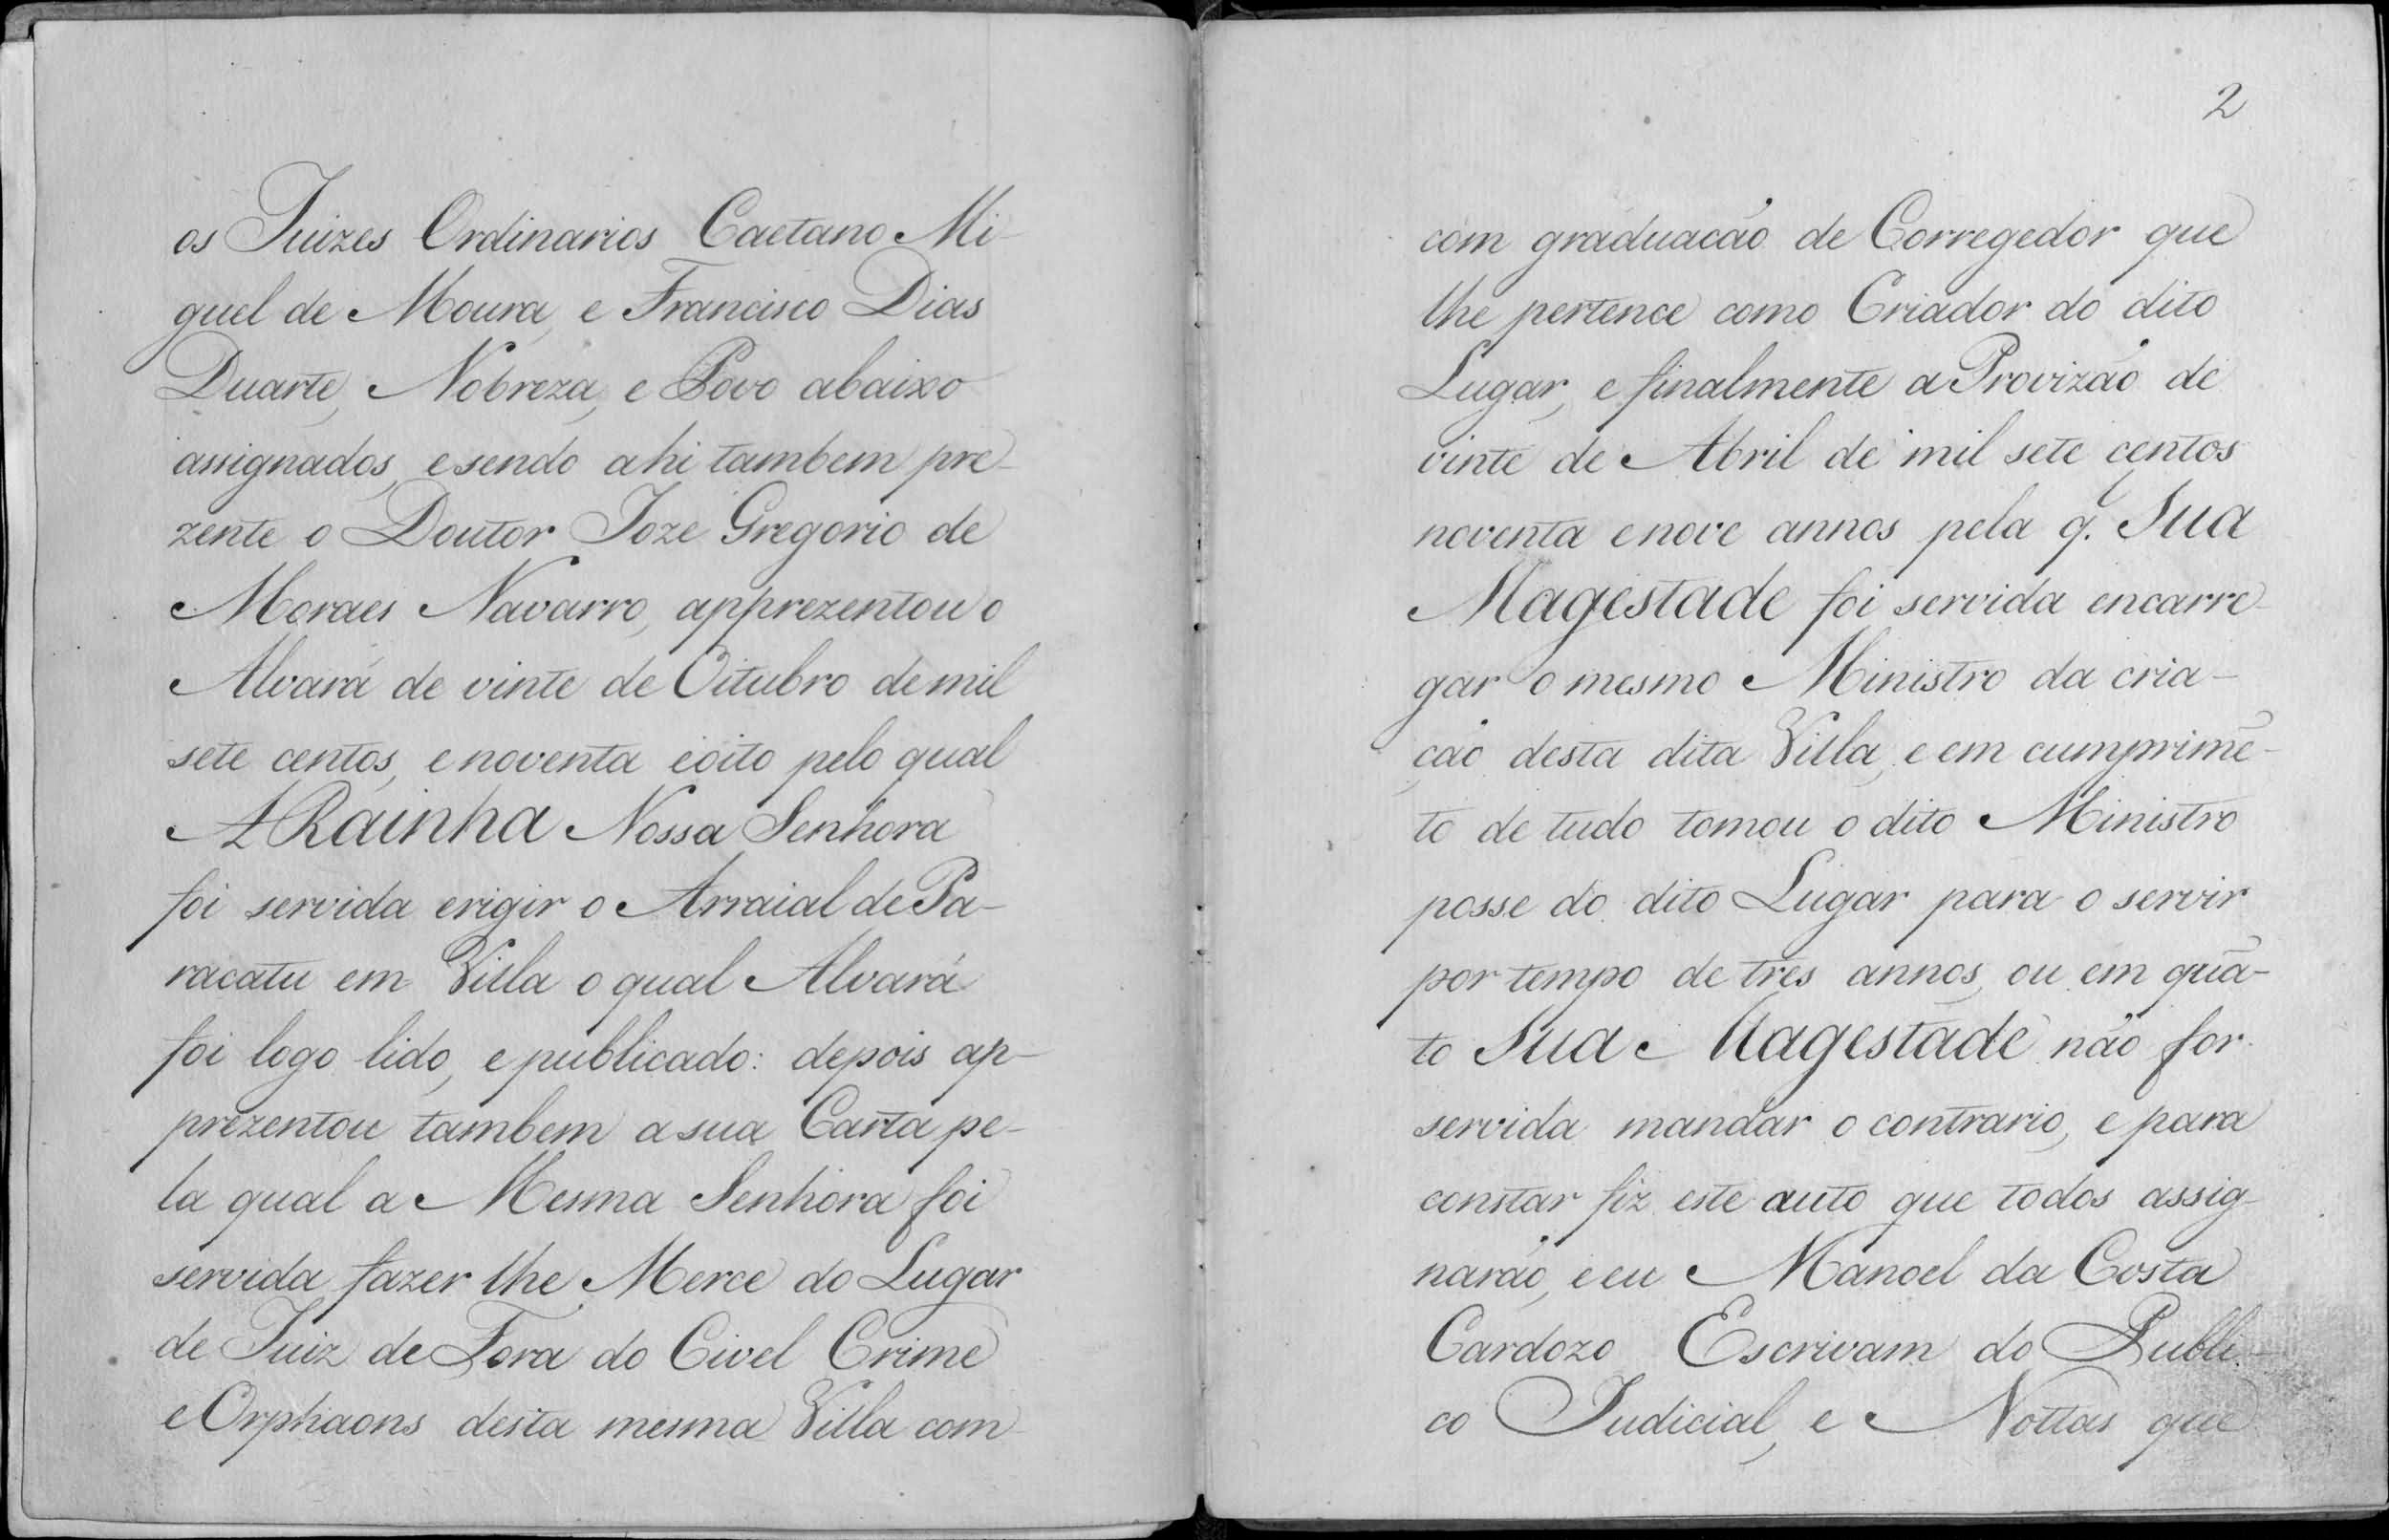 os Juizes Ordinarios Caetano Mi-
guel de Moura, e Francisco Dias
Duarte, Nobreza, e Povo abaixo
assignados, e sendo ahi tambem pre-
zente o Doutor Joze Gregorio de
Moraes Navarro, apprezentou o
Alvará de vinte de Oitubro de mil
sete centos, e noventa e oito pelo qual
A Rainha Nossa Senhora
foi servida erigir o Arraial de Pa-
racatu em Villa o qual Alvará
foi logo lido, e publicado: depois ap-
prezentou tambem a sua Carta pe-
la qual a Mesma Senhora foi
servida fazer lhe Merce do Lugar
de Juiz de Fora do Civel Crime
e Orphaons desta mesma Villa com
2
com graduacão de Corregedor que
lhe pertence como Criador do dito
Lugar, e finalmente a Provizão de
vinte de Abril de mil sete centos
noventa e nove annos pela q. Sua
Magestade foi servida encarre-
gar o mesmo Ministro da cria-
ção desta dita Villa, e em cumprimẽ-
to de tudo tomou o dito Ministro
posse do dito Lugar para o servir
por tempo de tres annos, ou em quã-
to Sua Magestade não for
servida mandar o contrario, e para
constar fiz este auto que todos assig-
narão, e eu Manoel da Costa
Cardozo Escrivam do Publi-
co Judicial, e Nottas que